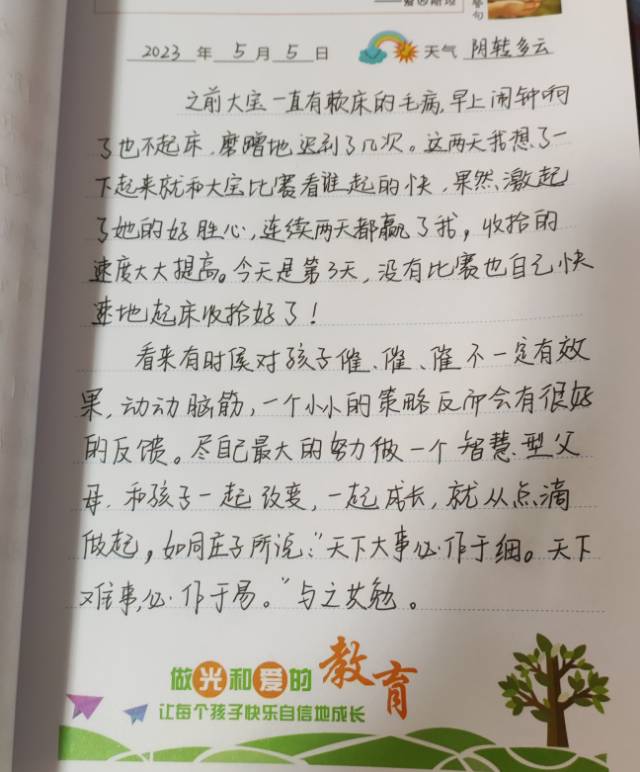 ——爱因斯坦
警句
2023 年 5 月 5 日 天气 阴转多云
之前大宝一直有赖床的毛病,早上闹钟响
了也不起床,磨蹭地迟到了几次。这两天我想了一
下起来就和大宝比赛看谁起的快,果然,激起
了她的好胜心,连续两天都赢了我,收拾的
速度大大提高。今天是第3天,没有比赛也自己快
速地起床收拾好了!
看来有时候对孩子催、催、催不一定有效
果,动动脑筋,一个小小的策略反而会有很好
的反馈。尽自己最大的努力做一个智慧型父
母,和孩子一起改变,一起成长,就从点滴
做起,如同庄子所说:“天下大事必作于细。天下
难事,必作于易。”与之共勉。
做光和爱的教育
让每个孩子快乐自信地成长